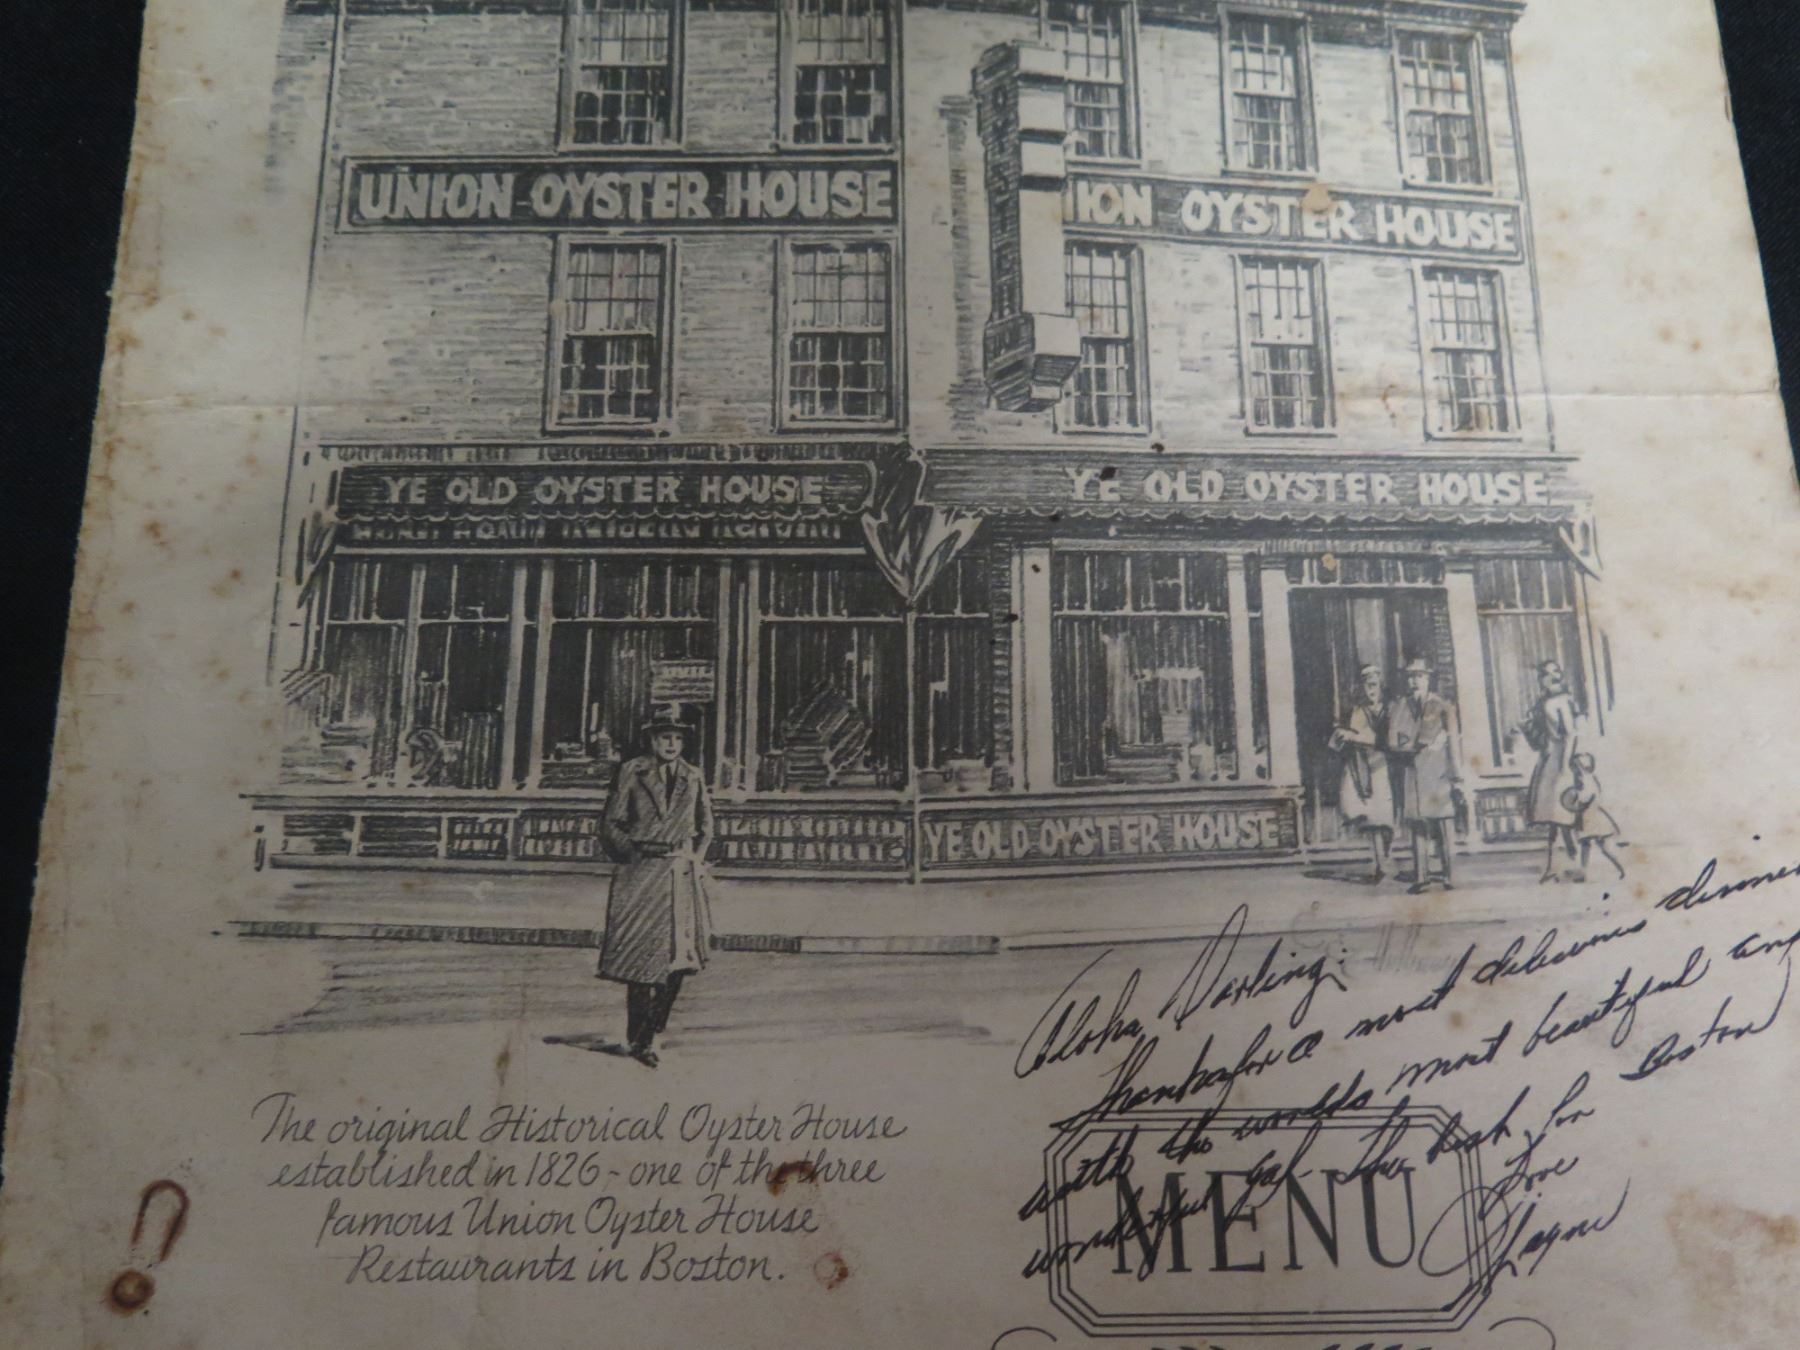 UNION OYSTER HOUSE
ION OYSTER HOUSE
YE OLD OYSTER HOUSE
YE OLD OYSTER HOUSE
YE OLD OYSTER HOUSE
Aloha Darling:
Thanks for a most delicious dinner
with the worlds most beautiful and
wonderful gal. The best in Boston
Love
The original Historical Oyster House
established in 1826 - one of the three
famous Union Oyster House
Restaurants in Boston.
MENU